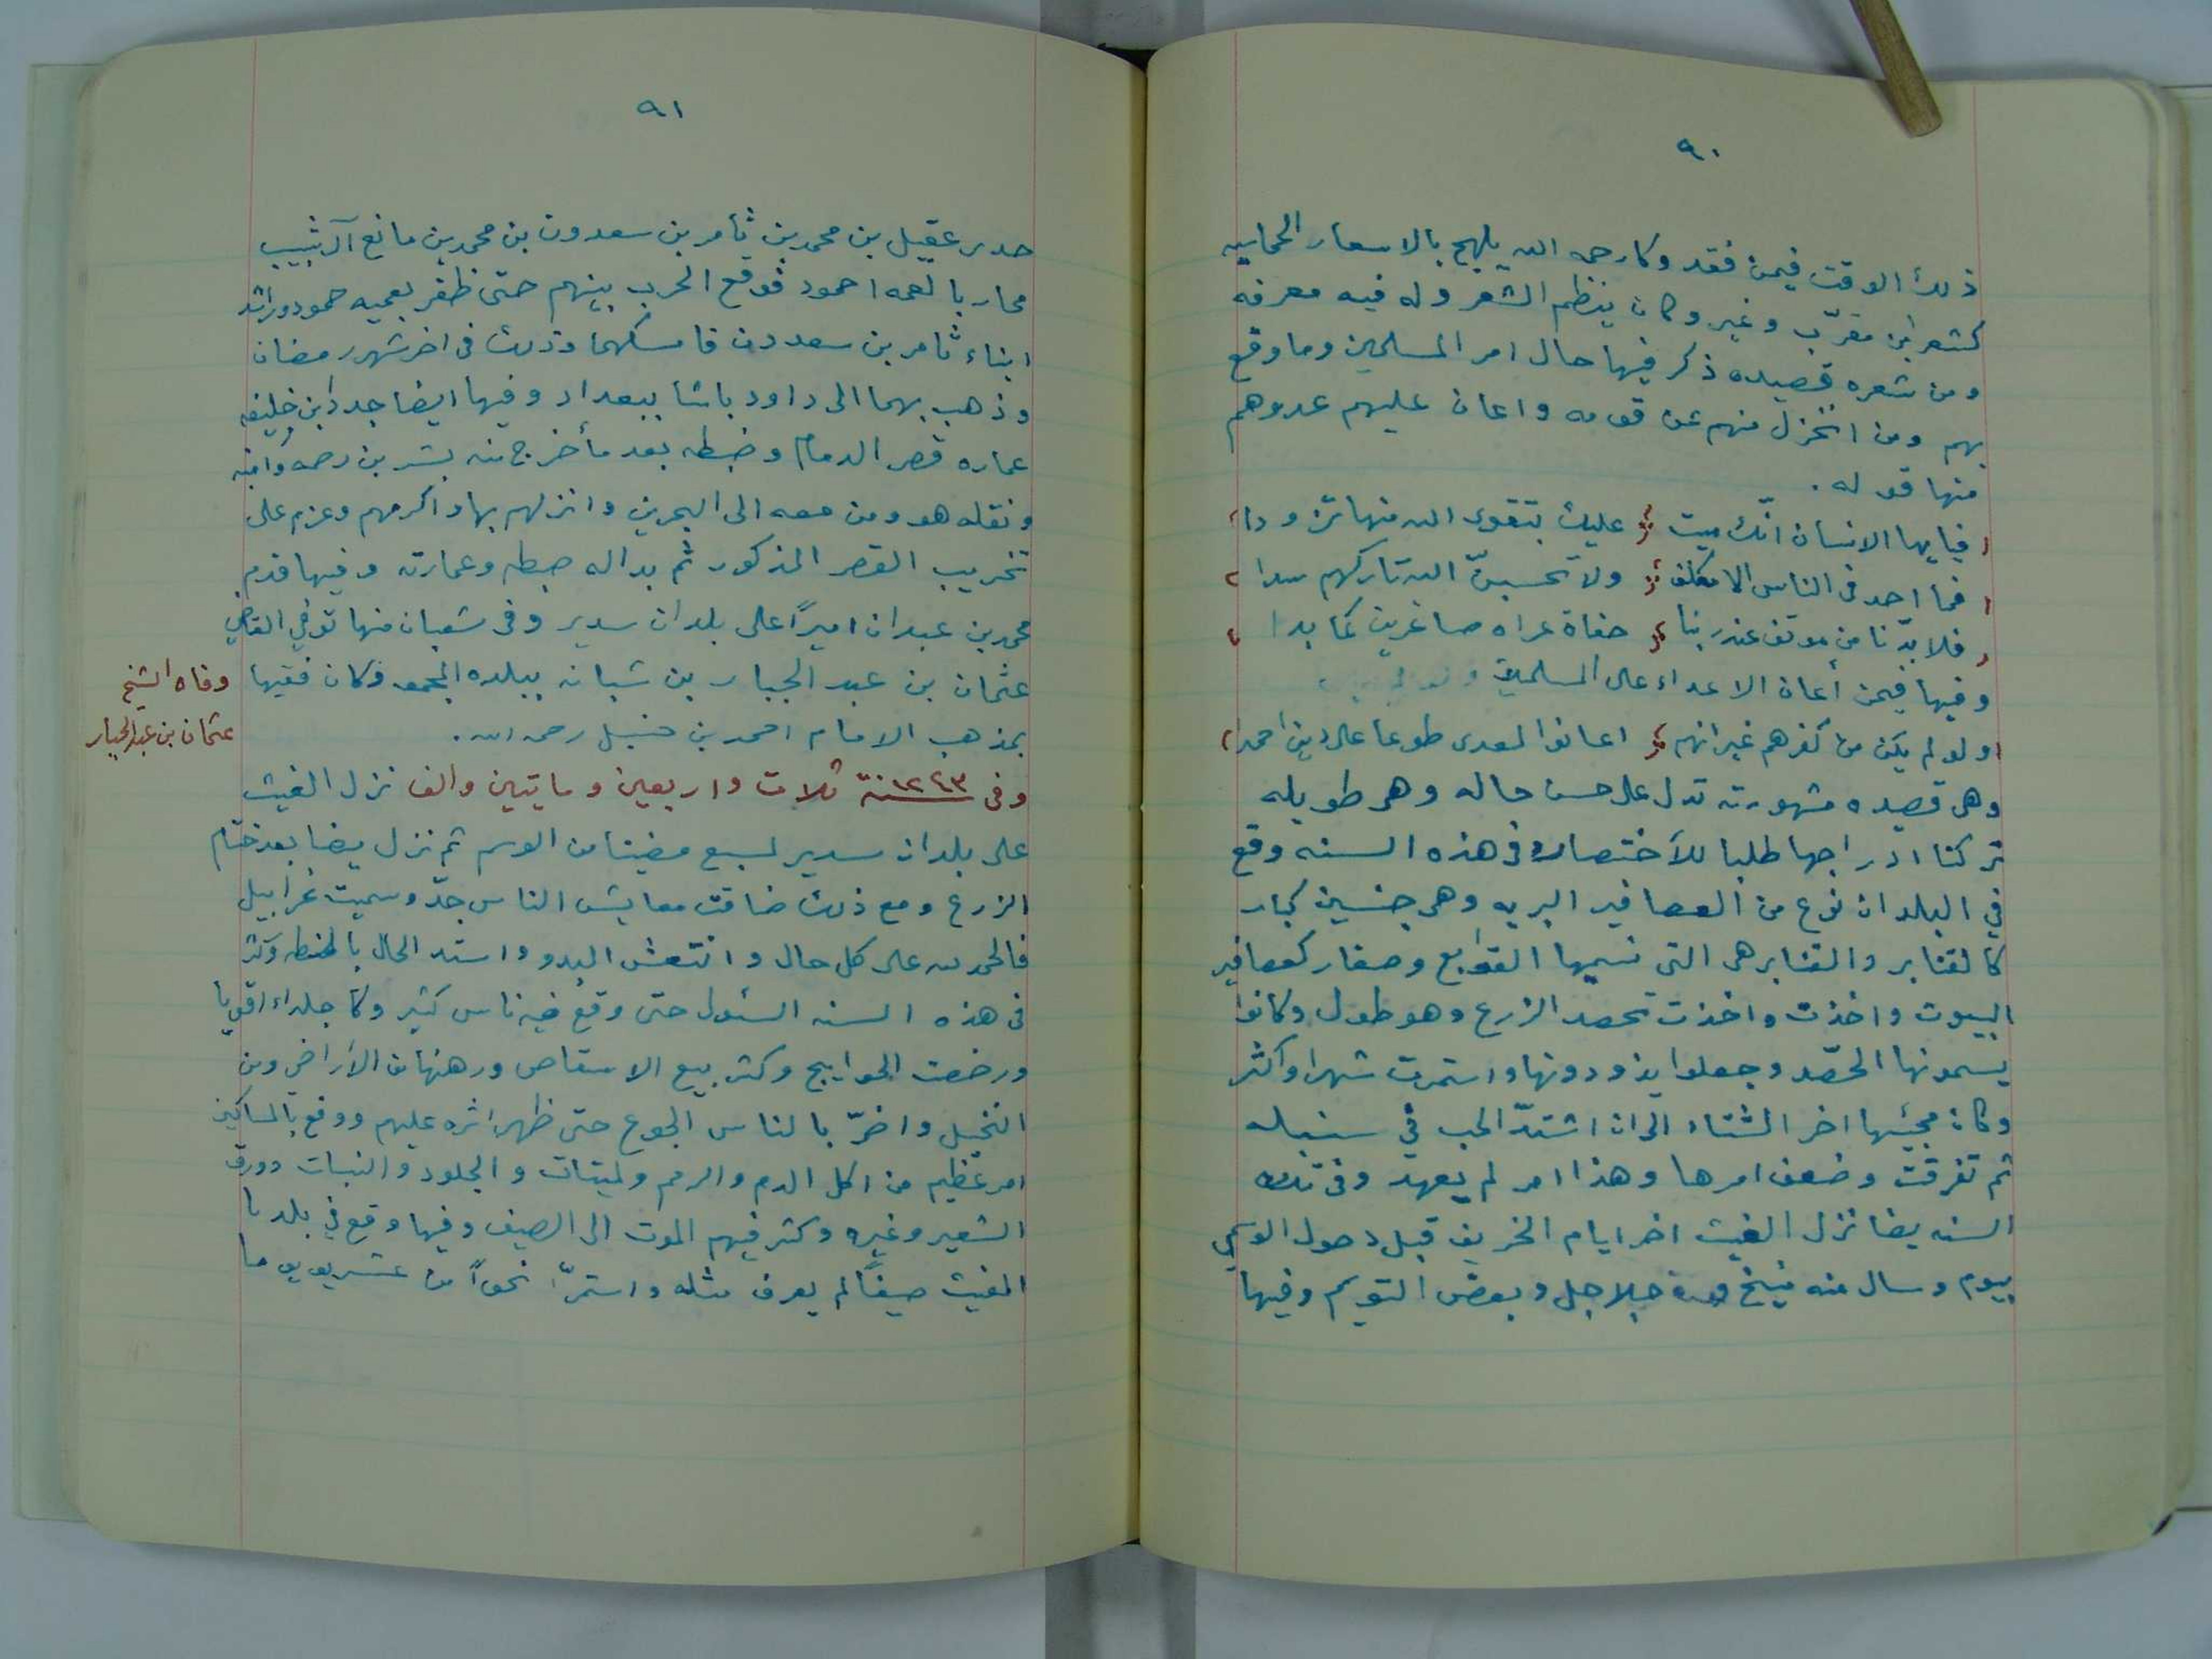 ٩٠
ذلك الوقت فيمن فقد وكا رحمه الله يلهج بالاسعار الحماسيه
كشعر ابن مقرّب وغير وكان ينظم الشعر وله فيه معرفه
ومن شعره قصيده ذكر فيها حال امر المسلمين وما وقع
بهم ومن انخزل منهم عن قومه واعان عليهم عدوهم
منها قوله .
فيايها الانسان انّك ميت عليك بتقوى الله منها تزودا
فما احد في الناس الا مكلف ولا تحسبنّ الله تاركهم سدا
فلا بدّ نا من موقف عند ربنا حفاة عراه صاغرين كما بدا
وفيها فيمن أعان الاعداء على المسلمين
ولو لم يكن من كفرهم غير انهم اعانوا لعدى طوعا على دين احمدا
وهى قصيده مشهورته تدل على حسن حاله وهى طويله
تركنا ادراجها طلبا للأختصار وفى هذه السنه وقع
في البلدان نوع من العصافير البريه وهى جنسين كبار
كالقنابر والقنابر هى التى نسميها القوابع وصغار كعصافير
البيوت واخذت واخذت تحصد الزرع وهو طول وكانوا
يسمونها الحصّد وجعلوا يذودونها واستمرت شهرا واكثر
وكان مجيئها اخر الشتاء الى ان اشتدّ الحب في سنبله
ثم تفرقت وضعف امرها وهذا امر لم يعهد وفى تلك
السنه يضا نزل الغيث اخر ايام الخريف قبل دخول الوسمي
بيوم وسال منه منيخ جلاجل وبعض التويم وفيها
٩١
حدر عقيل بن محمد بن ثامر بن سعدون بن محمد بن مانع آل شبيب
محاربا لعمه احمود فوقع الحرب بينهم حتى ظفر بعميه حمود وراشد
ابناء ثامر بن سعدون فامسكهما وذلك فى اخر شهر رمضان
وذهب بهما الى داود باشا ببغداد وفيها ايضا جدد ابن خليفه
عماره قصر الدمام وضبطه بعد مأخرج منه بشر بن رحمه وابنه
ونقله هو ومن معه الى البحرين وانزلهم بها واكرمهم وعزم على
تخريب القصر المذكور ثم بدا له ضبطه وعمارته وفيها قدم
محمد بن عبدان اميراً على بلدان سدير وفى شعبان منها توفي القاضي
عثمان بن عبد الجبار بن شبانه ببلده المجمعه وكان فقيها
وفاه الشيخ
عثمان بن عبد الجبار
بمذهب الامام احمد بن حنبل رحمه الله .
وفى سنة ١٢٤٣ ثلاث واربعين ومايتين والف نزل الغيث
على بلدان سدير لسبع مضينا من الوسم ثم نزل يضا بعد ختام
الزرع ومع ذلك ضاقت معايش الناس جدّ وسميت غرابيل
فالحمد لله على كل حال وانتعش البدو واستد الحال بالحنطه وكثر
فى هذه السنه السئول حتى وقع فيه ناس كثير وكا جلداء اقويا
ورخصت الحواييج وكثر بيع الاسقاص ورهنها من الأراضى ومن
النخيل واضرّ بالناس الجوع حتى ظهر اثره عليهم ووقع بالمساكين
امر عظيم من اكل الدم والرمم ولميتات والجلود والنبات وورق
الشعير وغيره وكثر فيهم الموت الى الصيف وفيها وقع في بلدنا
الغيث صيفاً لم يعرف مثله واستمرّ نحواً من عشريو يوما